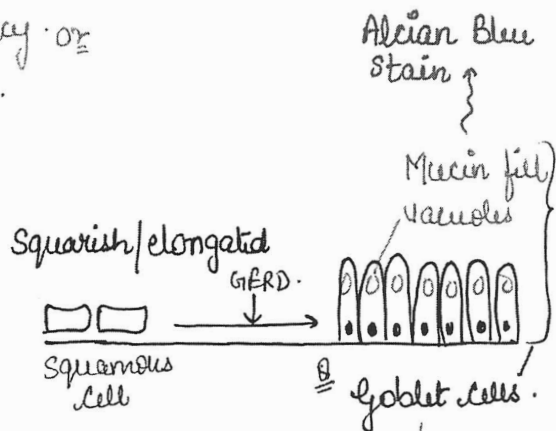 cy. or
Alcian Bleu
Stain
Mucin fill
vacuoles
Squarish/elongatid
GERD.
Squamous
Cell
Q
Goblet Cells.